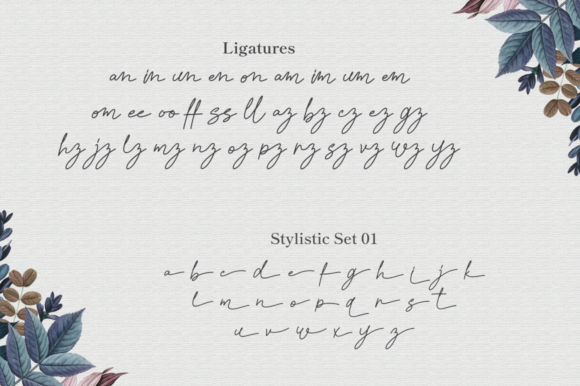 Ligatures
an in un en on am im um em
om ee oo ff ss ll az bz cz ez gz
hz jz lz mz nz oz pz rz sz vz wz yz
Stylistic Set 01
a b c d e f g h i j k
l m n o p q r s t
u v w x y z